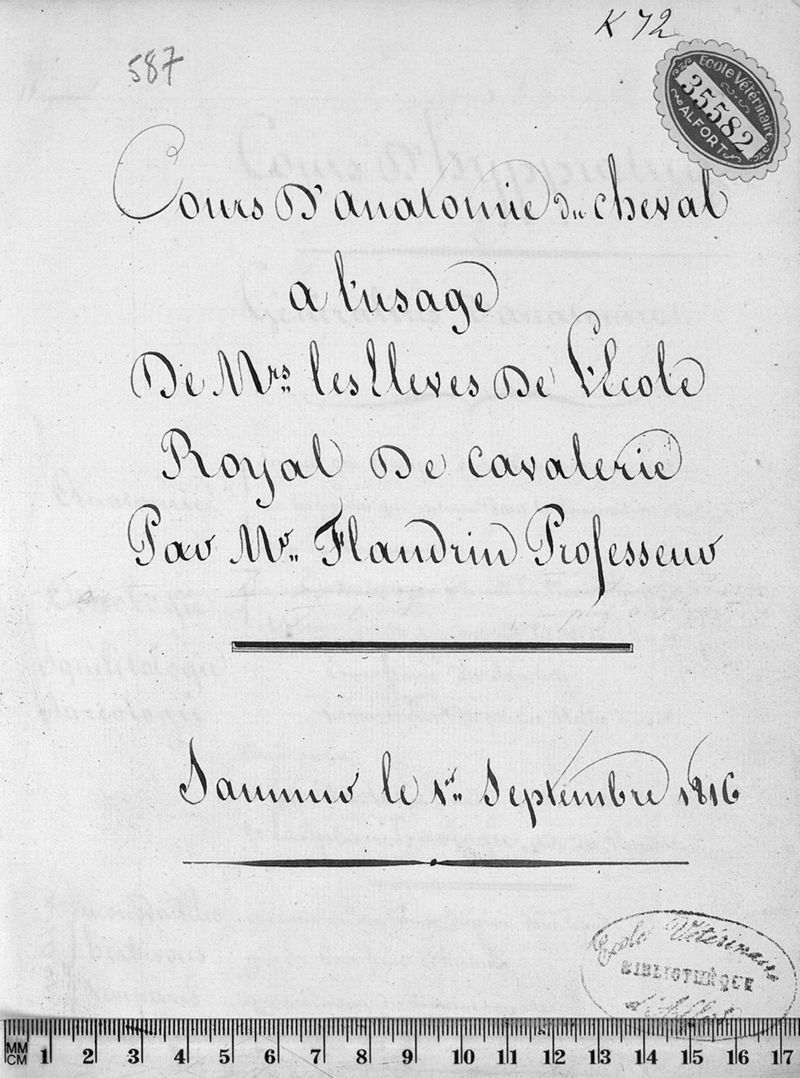 K 72
587
Ecole Vétérinaire
35582
ALFORT
Cours D'anatomie du cheval
a l'usage
De Mrs les Eleves De l'Ecole
Royal De cavalerie
Par Mr. Flandrin Professeur
Saumur le 1er Septembre 1816
Ecole Vétérinaire
BIBLIOTHÈQUE
d'Alfort
MM
CM 1 2 3 4 5 6 7 8 9 10 11 12 13 14 15 16 17